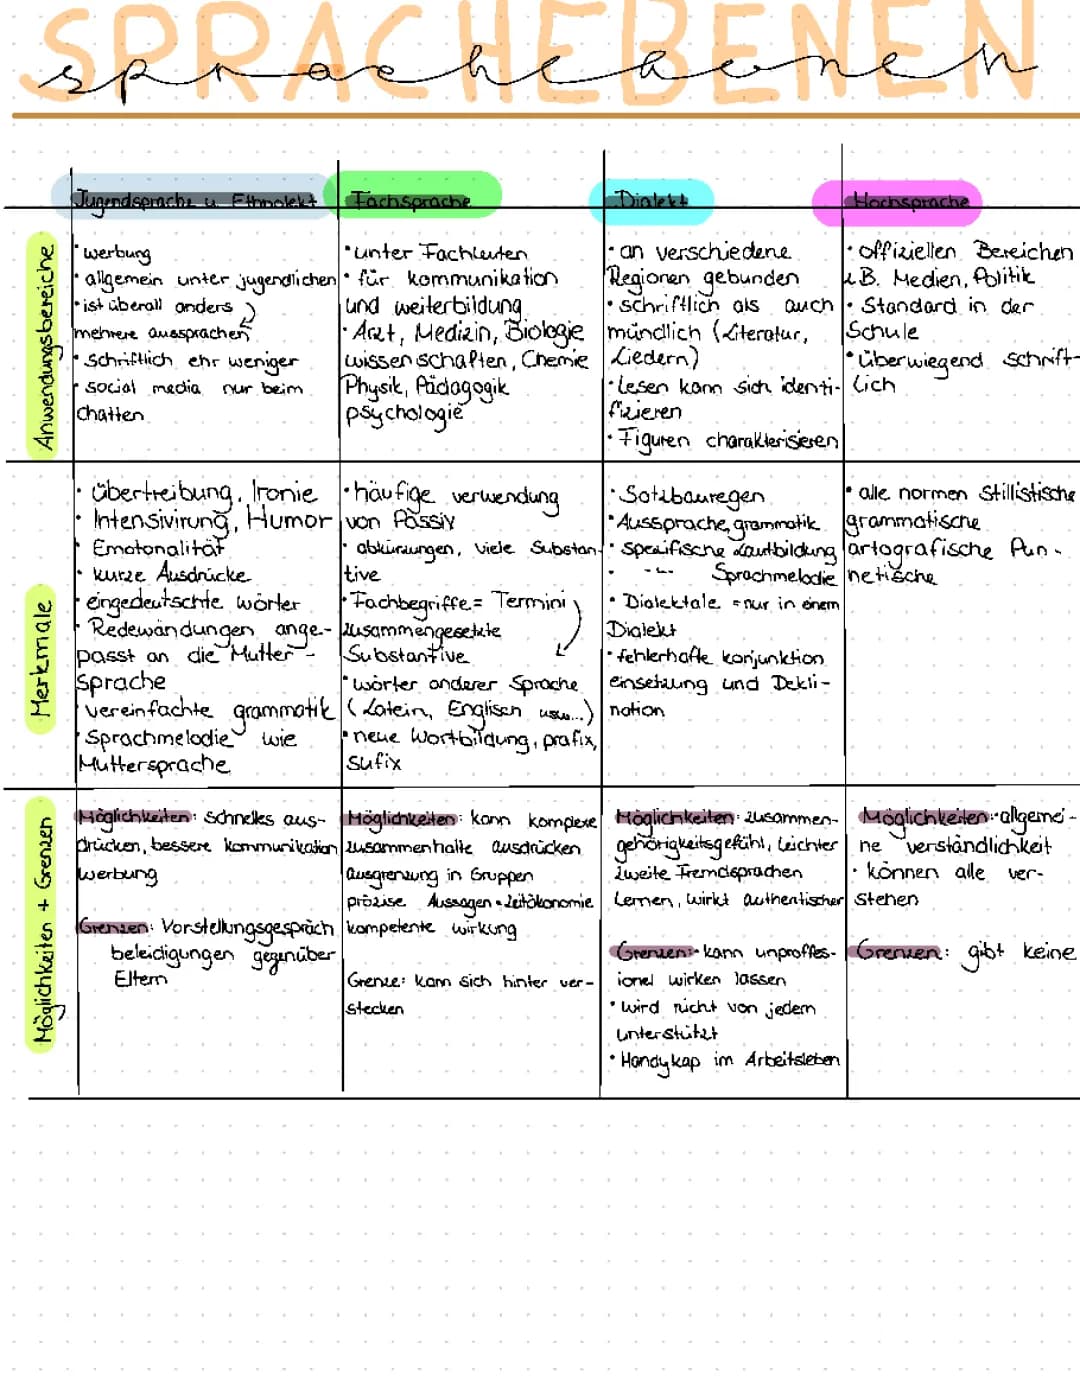 SPRACHEBENEN
sprachebenen
Jugendsprache u. Ethnolekt
Fachsprache
Dialekt
Hochsprache
Anwendungsbereiche
• werbung
• allgemein unter jugendlichen
• ist überall anders
mehrere aussprachen
• schriftlich ehr weniger
• social media nur beim
chatten
• unter Fachleuten
• für kommunikation
und weiterbildung
• Arzt, Medizin, Biologie
wissenschaften, Chemie
Physik, Pädagogik
psychologie
• an verschiedene
Regionen gebunden
• schriftlich als auch
mündlich (Literatur,
Liedern)
• Lesen kann sich identi-
fizieren
• Figuren charakterisieren
• offiziellen Bereichen
z.B. Medien, Politik
• Standard in der
Schule
• überwiegend schrift-
lich
Merkmale
• übertreibung, Ironie
• Intensivirung, Humor
• Emotonalität
• kurze Ausdrücke
• eingedeutschte wörter
• Redewandungen ange-
passt an die Mutter-
sprache
• vereinfachte grammatik
• Sprachmelodie wie
Muttersprache
• häufige verwendung
von Passiv
• abkürzungen, viele Substan-
tive
• Fachbegriffe = Termini
zusammengesetzte
Substantive
• wörter anderer Sprache
(Latein, Englisch usw...)
• neue Wortbildung, prafix,
sufix
• Satzbauregen
• Aussprache, grammatik
• spezifische Lautbildung
• -"- Sprachmelodie
• Dialektale = nur in einem
Dialekt
• fehlerhafte konjunktion
einsetzung und Dekli-
nation
• alle normen Stillistische
grammatische
artografische Pun-
netische
Möglichkeiten + Grenzen
Möglichkeiten: schnelles aus-
drücken, bessere kommunikation
werbung
Grenzen: Vorstellungsgespräch
beleidigungen gegenüber
Eltern
Möglichkeiten: kann komplexe
zusammenhalte ausdrücken
ausgrenzung in Gruppen
präzise Aussagen = Zeitökonomie
kompetente wirkung
Grenze: kann sich hinter ver-
stecken
Möglichkeiten: zusammen-
gehörigkeitsgefühl, leichter
zweite Fremdsprachen
Lernen, wirkt authentischer
Grenzen: • kann unproffes-
ionel wirken lassen
• wird nicht von jedem
unterstützt
• Handykap im Arbeitsleben
Möglichkeiten: • allgemei-
ne verständlichkeit
• können alle ver-
stehen
Grenzen: gibt keine